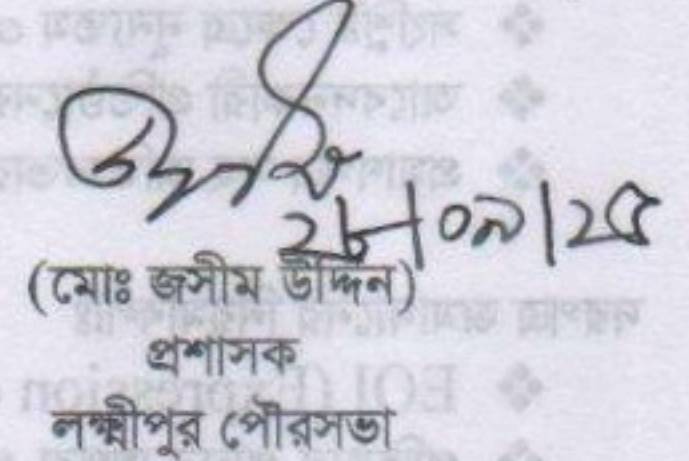 ২৮/০৯/২৫
(মোঃ জসীম উদ্দিন)
প্রশাসক
লক্ষ্মীপুর পৌরসভা